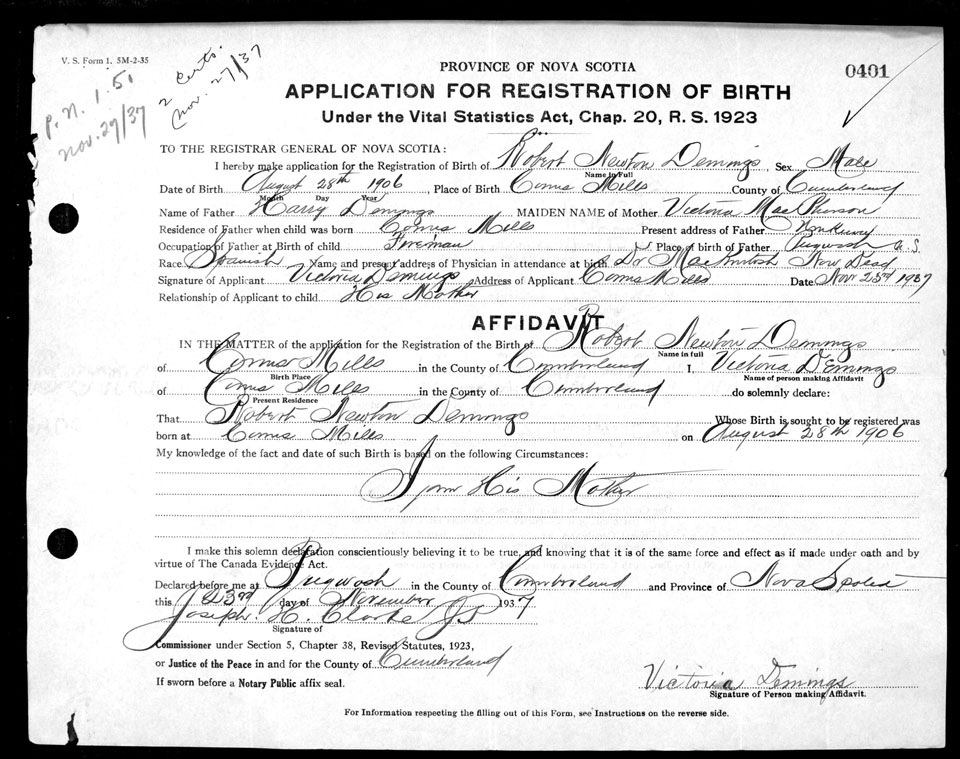 V. S. Form 1. 5M-2-35
P.N. 1.51
Nov. 29/37
2 Certs.
Nov. 27/37
0401
PROVINCE OF NOVA SCOTIA
APPLICATION FOR REGISTRATION OF BIRTH
Under the Vital Statistics Act, Chap. 20, R. S. 1923
TO THE REGISTRAR GENERAL OF NOVA SCOTIA:
I hereby make application for the Registration of Birth of Robert Newton Demings, Sex Male
Name in Full
Date of Birth August 28th 1906, Place of Birth Conns Mills County of Cumberland
Month Day Year
Name of Father Harry Demings MAIDEN NAME of Mother Victoria MacPherson
Residence of Father when child was born Conns Mills Present address of Father
Occupation of Father at Birth of child Fireman Place of birth of Father Pugwash N.S.
Race Spanish Name and present address of Physician in attendance at birth Dr MacKintosh Now Dead
Signature of Applicant Victoria Demings Address of Applicant Conns Mills Date Nov 23rd 1937
Relationship of Applicant to child His Mother
AFFIDAVIT
IN THE MATTER of the application for the Registration of the Birth of Robert Newton Demings
Name in full
of Conns Mills in the County of Cumberland I, Victoria Demings
Birth Place Name of person making Affidavit
of Conns Mills in the County of Cumberland do solemnly declare:
Present Residence
That Robert Newton Demings Whose Birth is sought to be registered was
born at Conns Mills on August 28th 1906
My knowledge of the fact and date of such Birth is based on the following Circumstances:
I am His Mother
I make this solemn declaration conscientiously believing it to be true, and knowing that it is of the same force and effect as if made under oath and by
virtue of The Canada Evidence Act.
Declared before me at Pugwash in the County of Cumberland and Province of Nova Scotia
this 23rd day of November 1937
Joseph. H. Clarke JP
Signature of
Commissioner under Section 5, Chapter 38, Revised Statutes, 1923,
or Justice of the Peace in and for the County of Cumberland
If sworn before a Notary Public affix seal.
Victoria Demings
Signature of Person making Affidavit.
For Information respecting the filling out of this Form, see Instructions on the reverse side.